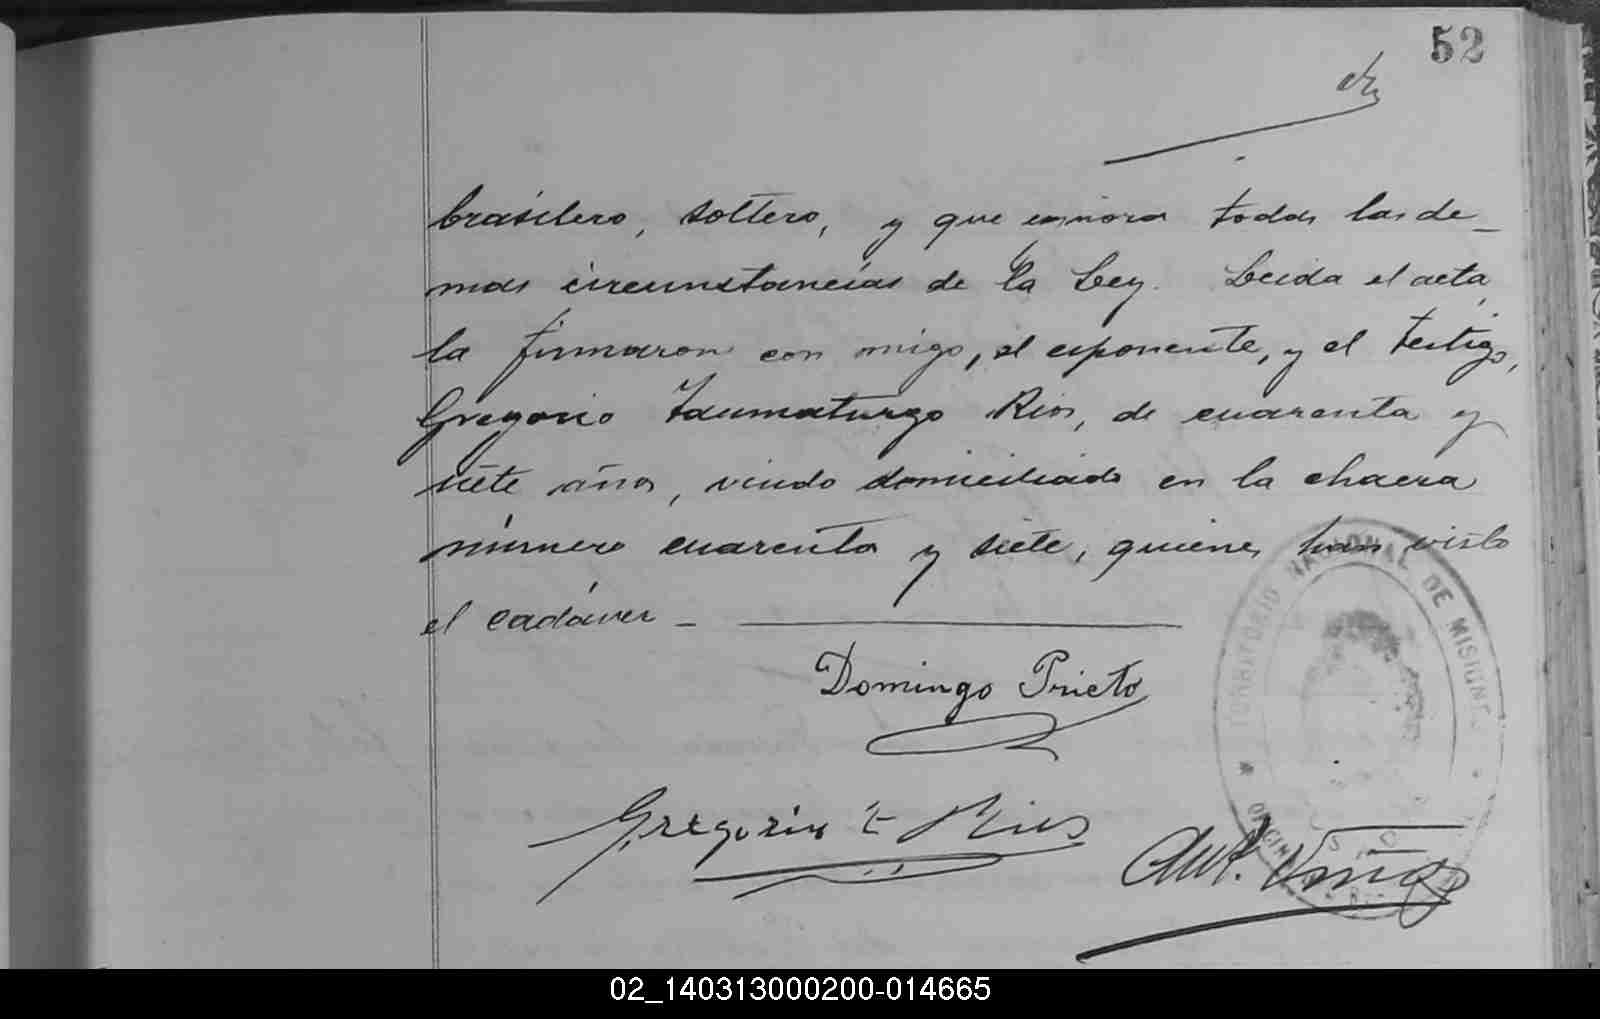 52
brasilero, soltero, y que ignora todas las de_
mas circunstancias de la Ley. Leida el acta
la firmaron con migo, el esponente, y el testigo,
Gregorio Taumaturgo Rios, de cuarenta y
siete años, viudo domiciliado en la chacra
número cuarenta y siete, quienes han visto
el cadáver _
Domingo Prieto
Gregorio T Rios
Ant. Viña
TERRITORIO NACIONAL DE MISIONES
02_140313000200-014665